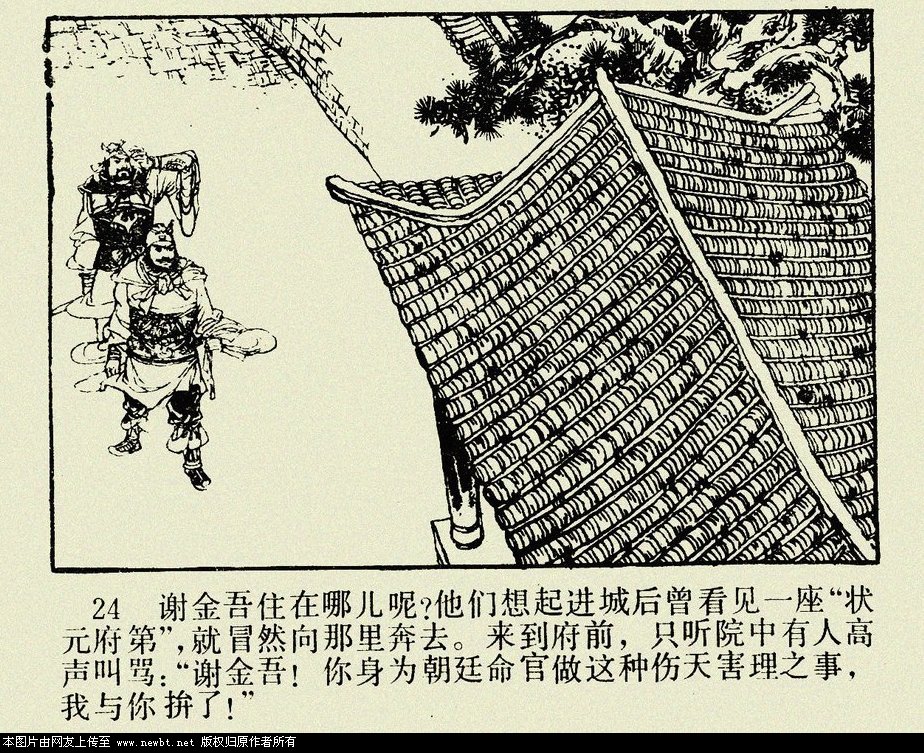 24 谢金吾住在哪儿呢?他们想起进城后曾看见一座“状
元府第”,就冒然向那里奔去。来到府前,只听院中有人高
声叫骂:“谢金吾!你身为朝廷命官做这种伤天害理之事,
我与你拚了!”
本图片由网友上传至 www.newbt.net 版权归原作者所有